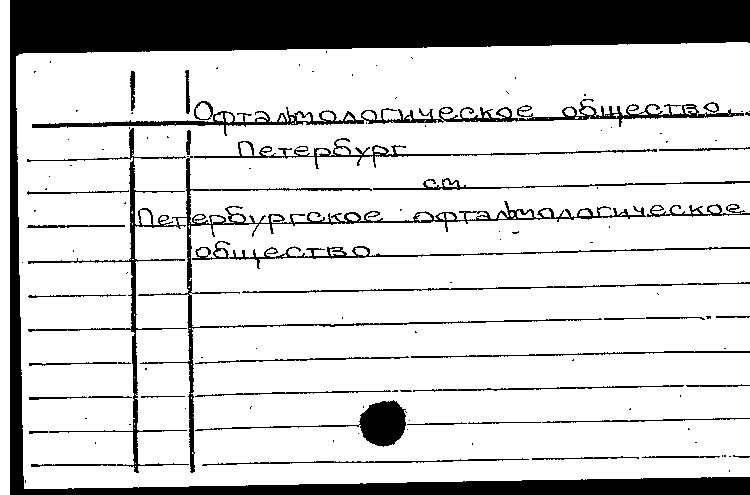 Офтальмологическое общество.
Петербург
см.
Петербургское офтальмологическое
общество.